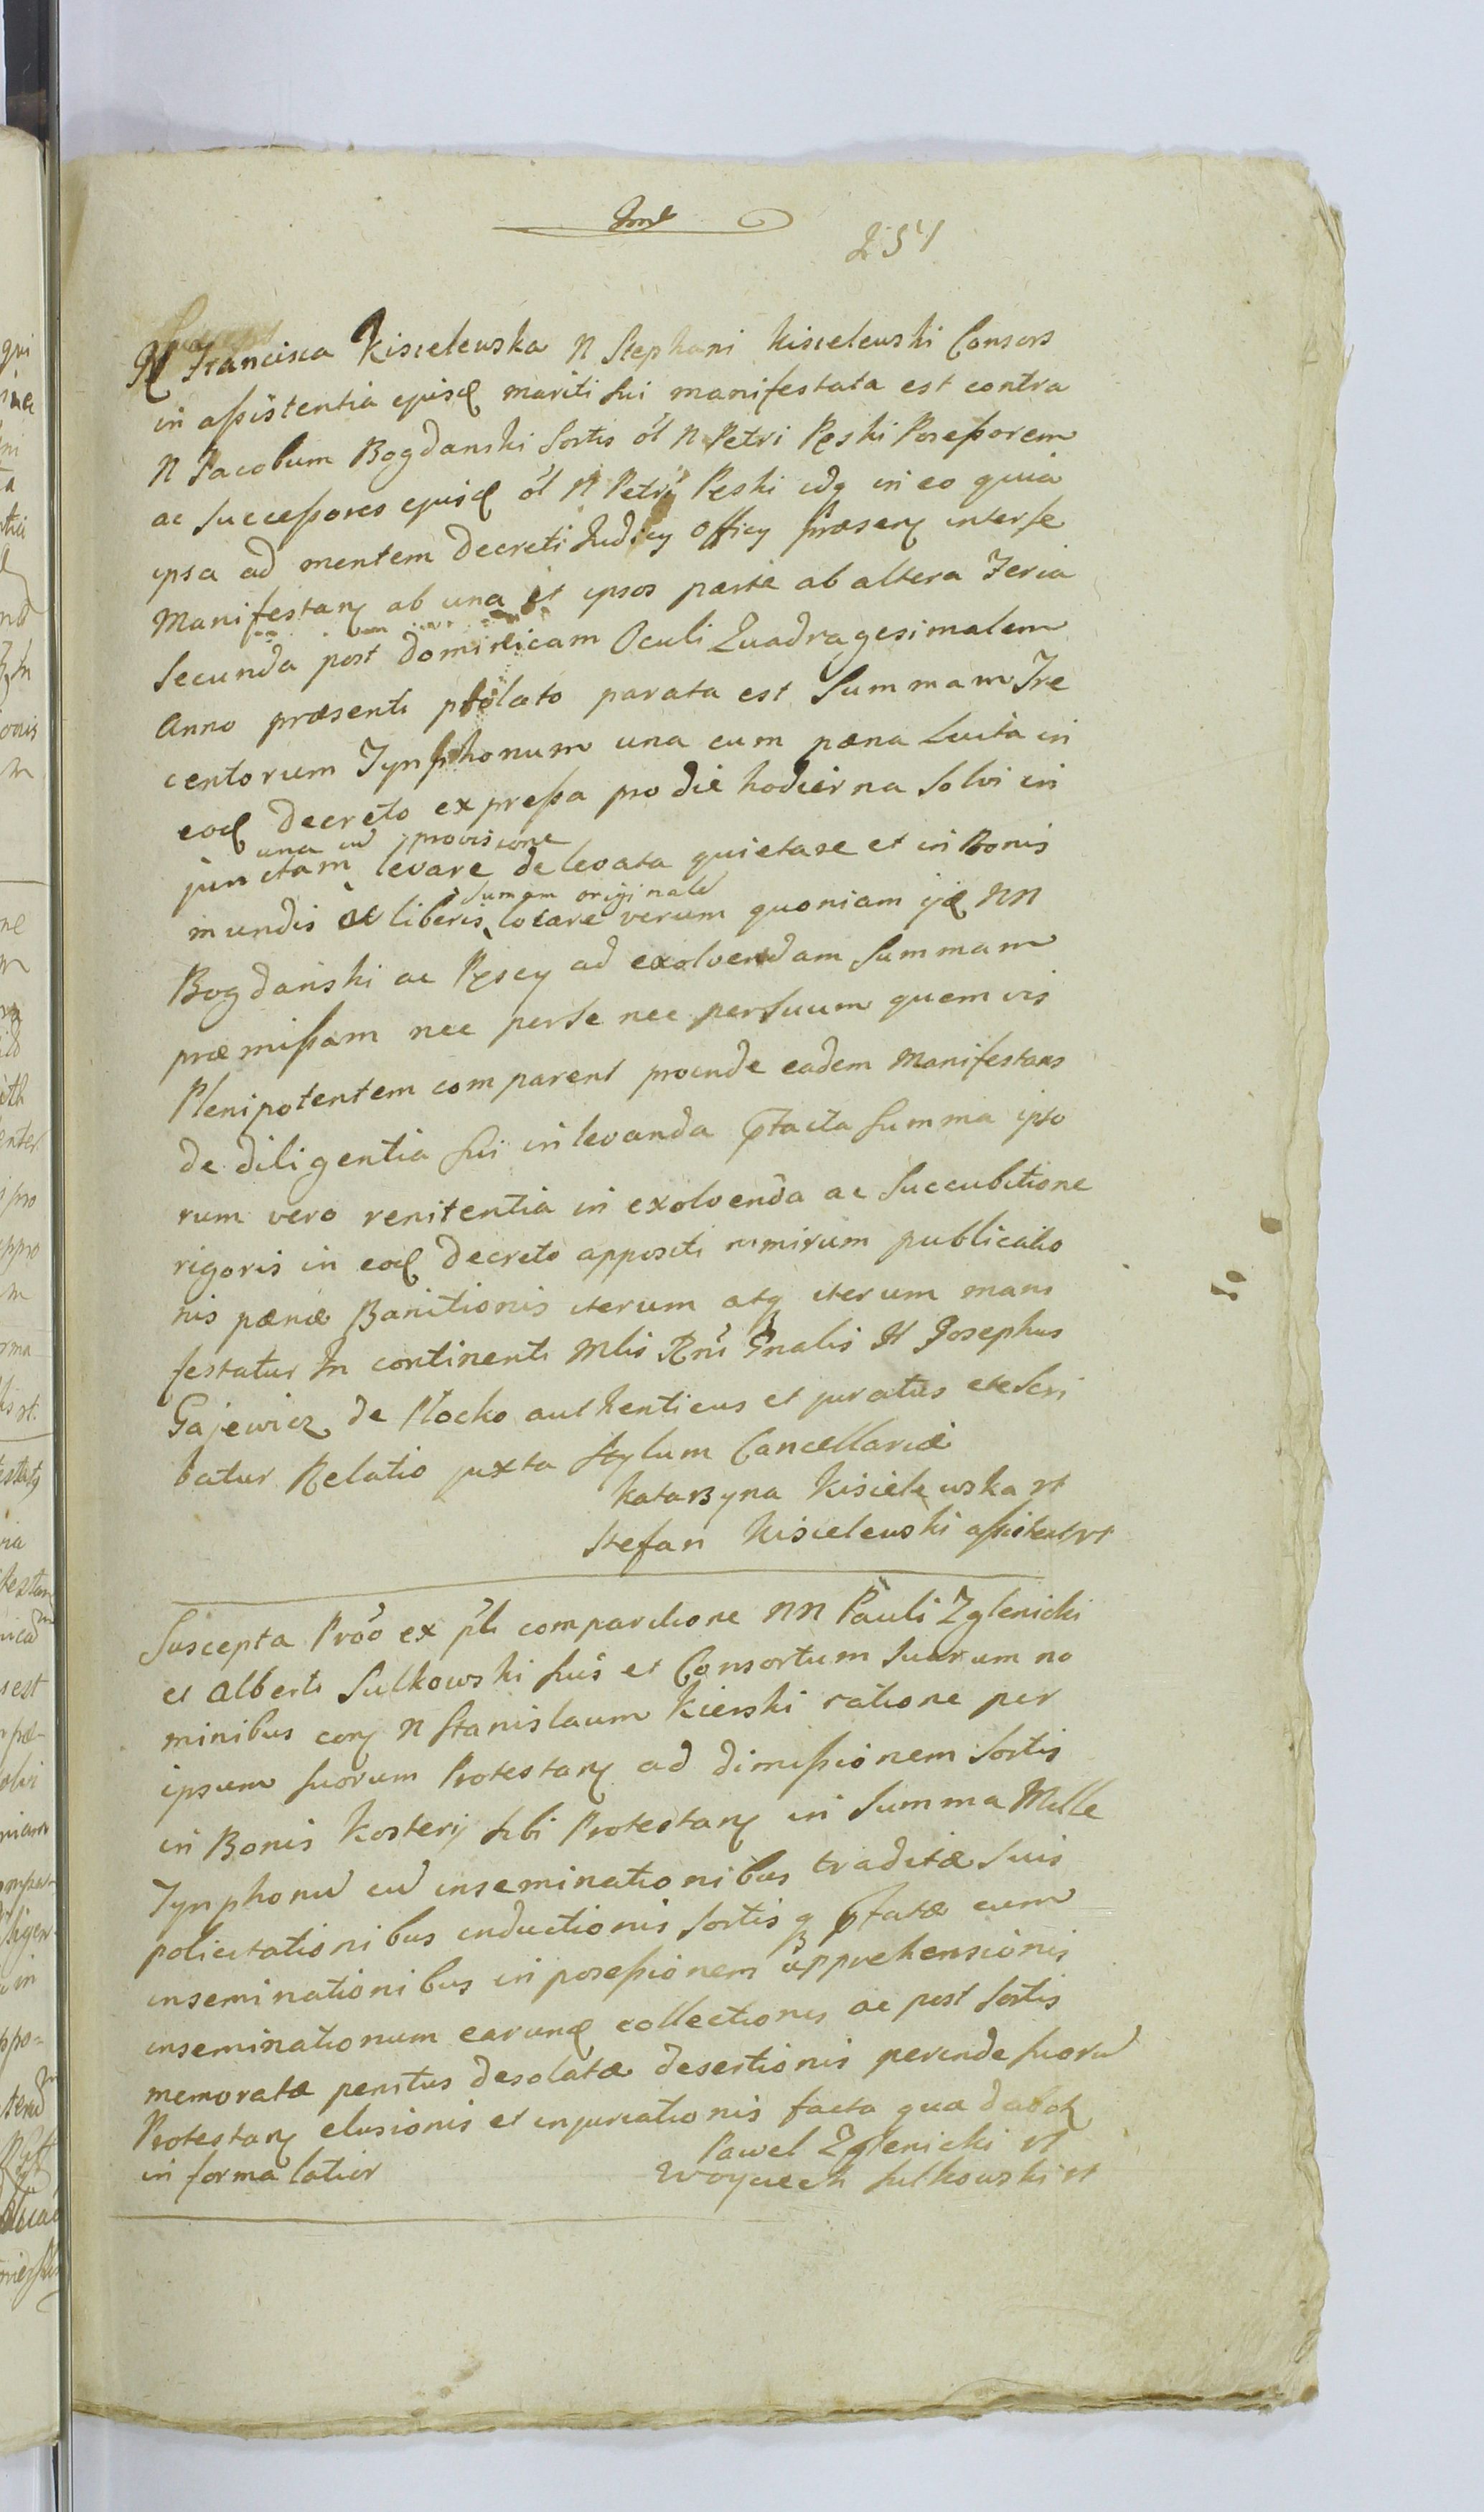 254
N Francisca Kisielewska N Stephani Kisielewski Consors
in assistentia ejusd mariti sui manifestata est contra
N Jacobum Bogdanski Sortis ol N Petri Pęski Possessorem
ac Successores ejusd ol N Petri Pęski idq in eo quia
ipsa ad mentem Decreti Judicy Officy præsen interse
Manifestan ab una et ipsos parte ab altera Feria
Secunda post dominicam Oculi Quadragesimalem
Anno præsenti parata est Summam Tre
centorum Tynphonum una cum pæna Luita in
eod Decreto expressa pro die hodierna solvi in
una cu provisione
junctam levare de levata quietare et in Bonis
Sumam originale
mundis ac liberis locare verum quoniam ijd NN
Bogdanski ac Pęscy ad exolvendam Summam
præmissam nec perse nec persuum quemvis
Plenipotentem comparent proinde eadem Manifestans
de diligentia sui in levanda ptacta summa ipso
rum vero renitentia in exolvenda ac succubitione
rigoris in eod Decreto appositi nimirum publicatio
nis pænæ Banitionis iterum atq iterum mani
festatur In continenti Mlis Rni Gnalis H Josephus
Gajewicz de Plocko authenticus et juratus etc Scri
batur Relatio juxta stylum Cancellariæ
Katarzyna Kisielewska
Stefan Kisielewski
Suscepta Proo ex pli comparitione NN Pauli Zglenicki
et Alberti Sulkowski suis et Consortum suarum no
minibus con N Stanislaum Kierski ratione per
ipsum suorum Protestan ad dimissionem sortis
in Bonis Kostery sibi Protestan in Summa Mille
Tynphonu cu inseminationibus traditæ suis
policitationibus inductionis sortis q ptatæ cum
inseminationibus in possessionem apprehensionis
inseminationum earund collectionis ac post sortis
memoratæ penitus desolatæ desertionis perinde suoru
Protestan elusionis et injuriationis facta qua dabot
in forma latior
Pawel Zglenicki
Woyciech Sulkowski